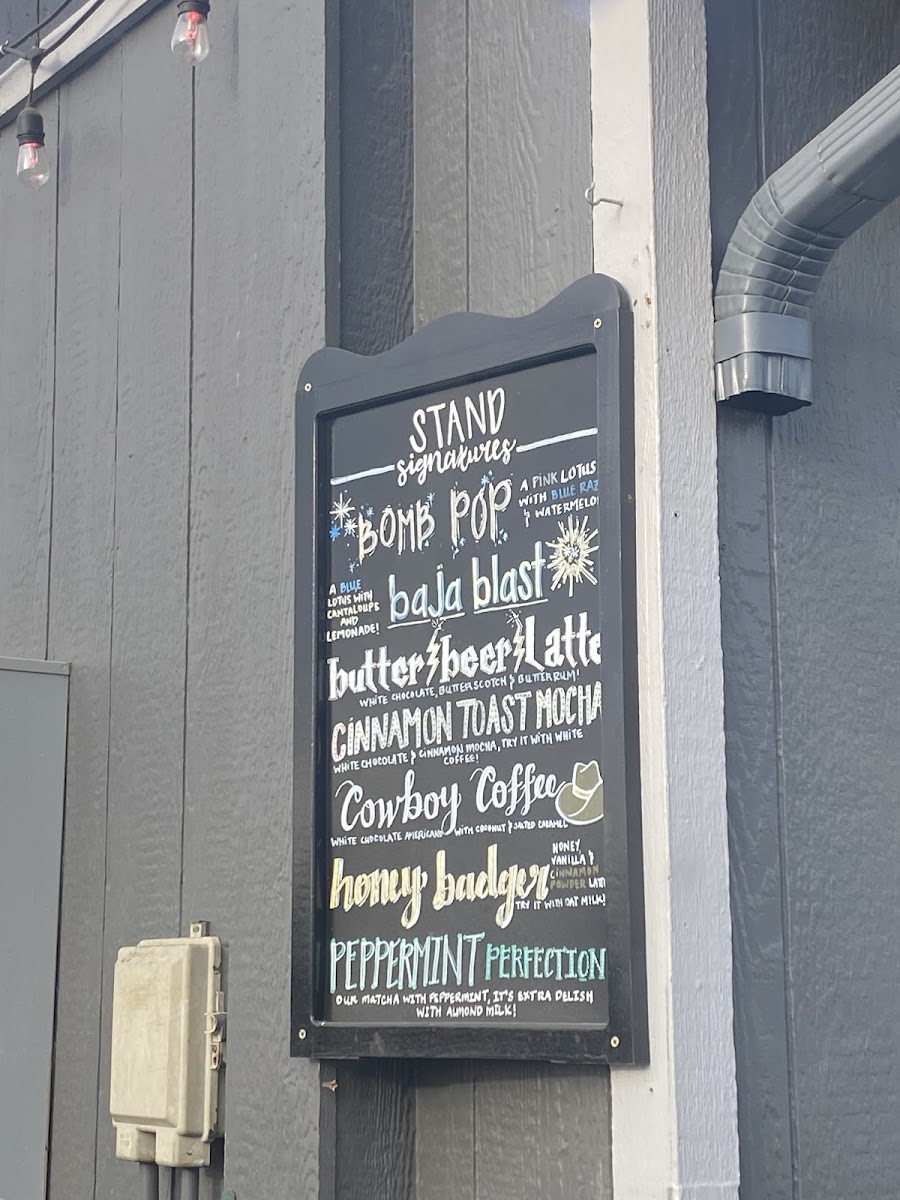 STAND
signatures
BOMB POP
A PINK LOTUS
WITH BLUE RAZ
& WATERMELO
A BLUE
LOTUS WITH
CANTALOUPE
AND
LEMONADE!
baja blast
butter beer Latte
WHITE CHOCOLATE, BUTTERSCOTCH & BUTTER RUM!
CINNAMON TOAST MOCHA
WHITE CHOCOLATE & CINNAMON MOCHA, TRY IT WITH WHITE
COFFEE!
Cowboy Coffee
WHITE CHOCOLATE AMERICANO WITH COCONUT & SALTED CARAMEL
honey badger
HONEY,
VANILLA &
CINNAMON
POWDER LATT
TRY IT WITH OAT MILK!
PEPPERMINT PERFECTION
OUR MATCHA WITH PEPPERMINT, IT'S EXTRA DELISH
WITH ALMOND MILK!